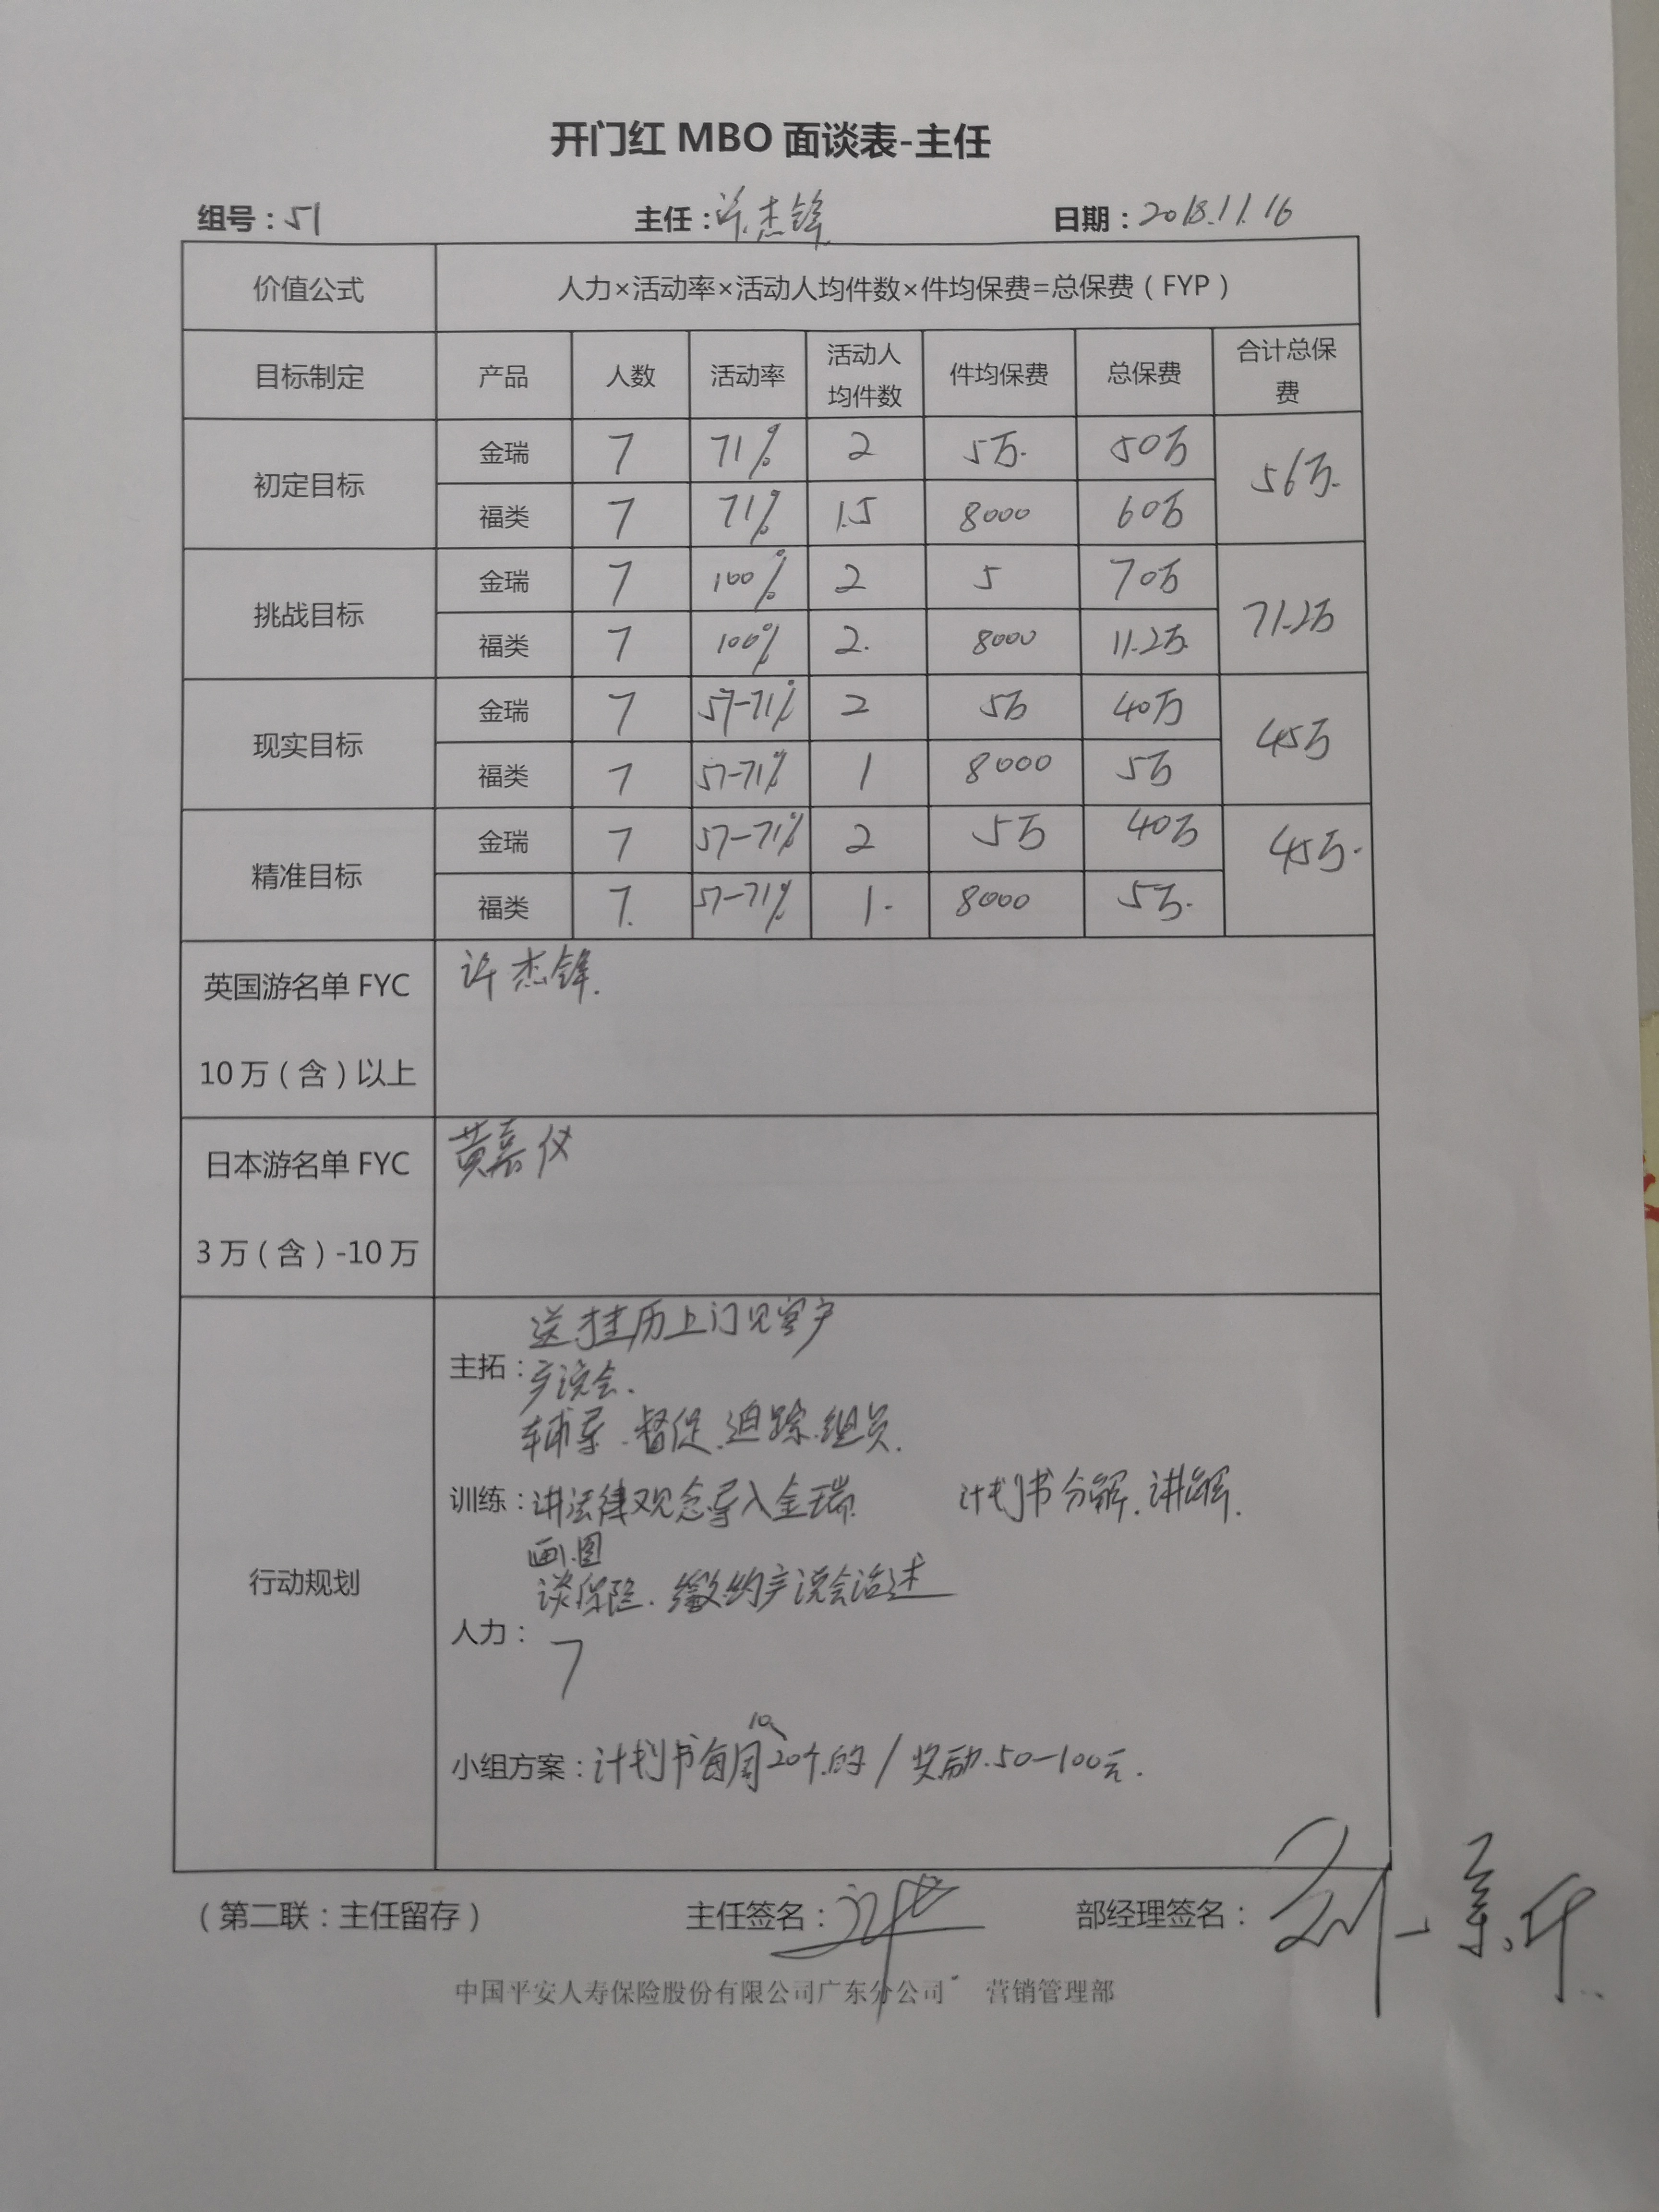 开门红 MBO 面谈表-主任
组号：51 主任：许杰锋 日期：2018.11.16
价值公式 人力×活动率×活动人均件数×件均保费=总保费（FYP）
目标制定 产品 人数 活动率 活动人均件数 件均保费 总保费 合计总保费
初定目标 金瑞 7 71% 2 5万. 50万 56万.
福类 7 71% 1.5 8000 60万
挑战目标 金瑞 7 100% 2 5 70万 71.2万
福类 7 100% 2. 8000 11.2万.
现实目标 金瑞 7 57-71% 2 5万 40万 45万
福类 7 57-71% 1 8000 5万
精准目标 金瑞 7 57-71% 2 5万 40万 45万.
福类 7. 57-71% 1. 8000 5万.
英国游名单 FYC 许杰锋.
10万（含）以上
日本游名单 FYC 黄嘉仪
3万（含）-10万
行动规划
送挂历上门见客户
主拓：产说会.
辅导.督促.追踪.组员.
训练：讲法律观念导入金瑞. 计划书分解.讲解.
画图
谈保险.缴约产说会话述
人力：
7
10
小组方案：计划书每周20个的/奖励.50-100元.
（第二联：主任留存） 主任签名： 部经理签名：
中国平安人寿保险股份有限公司广东分公司 营销管理部